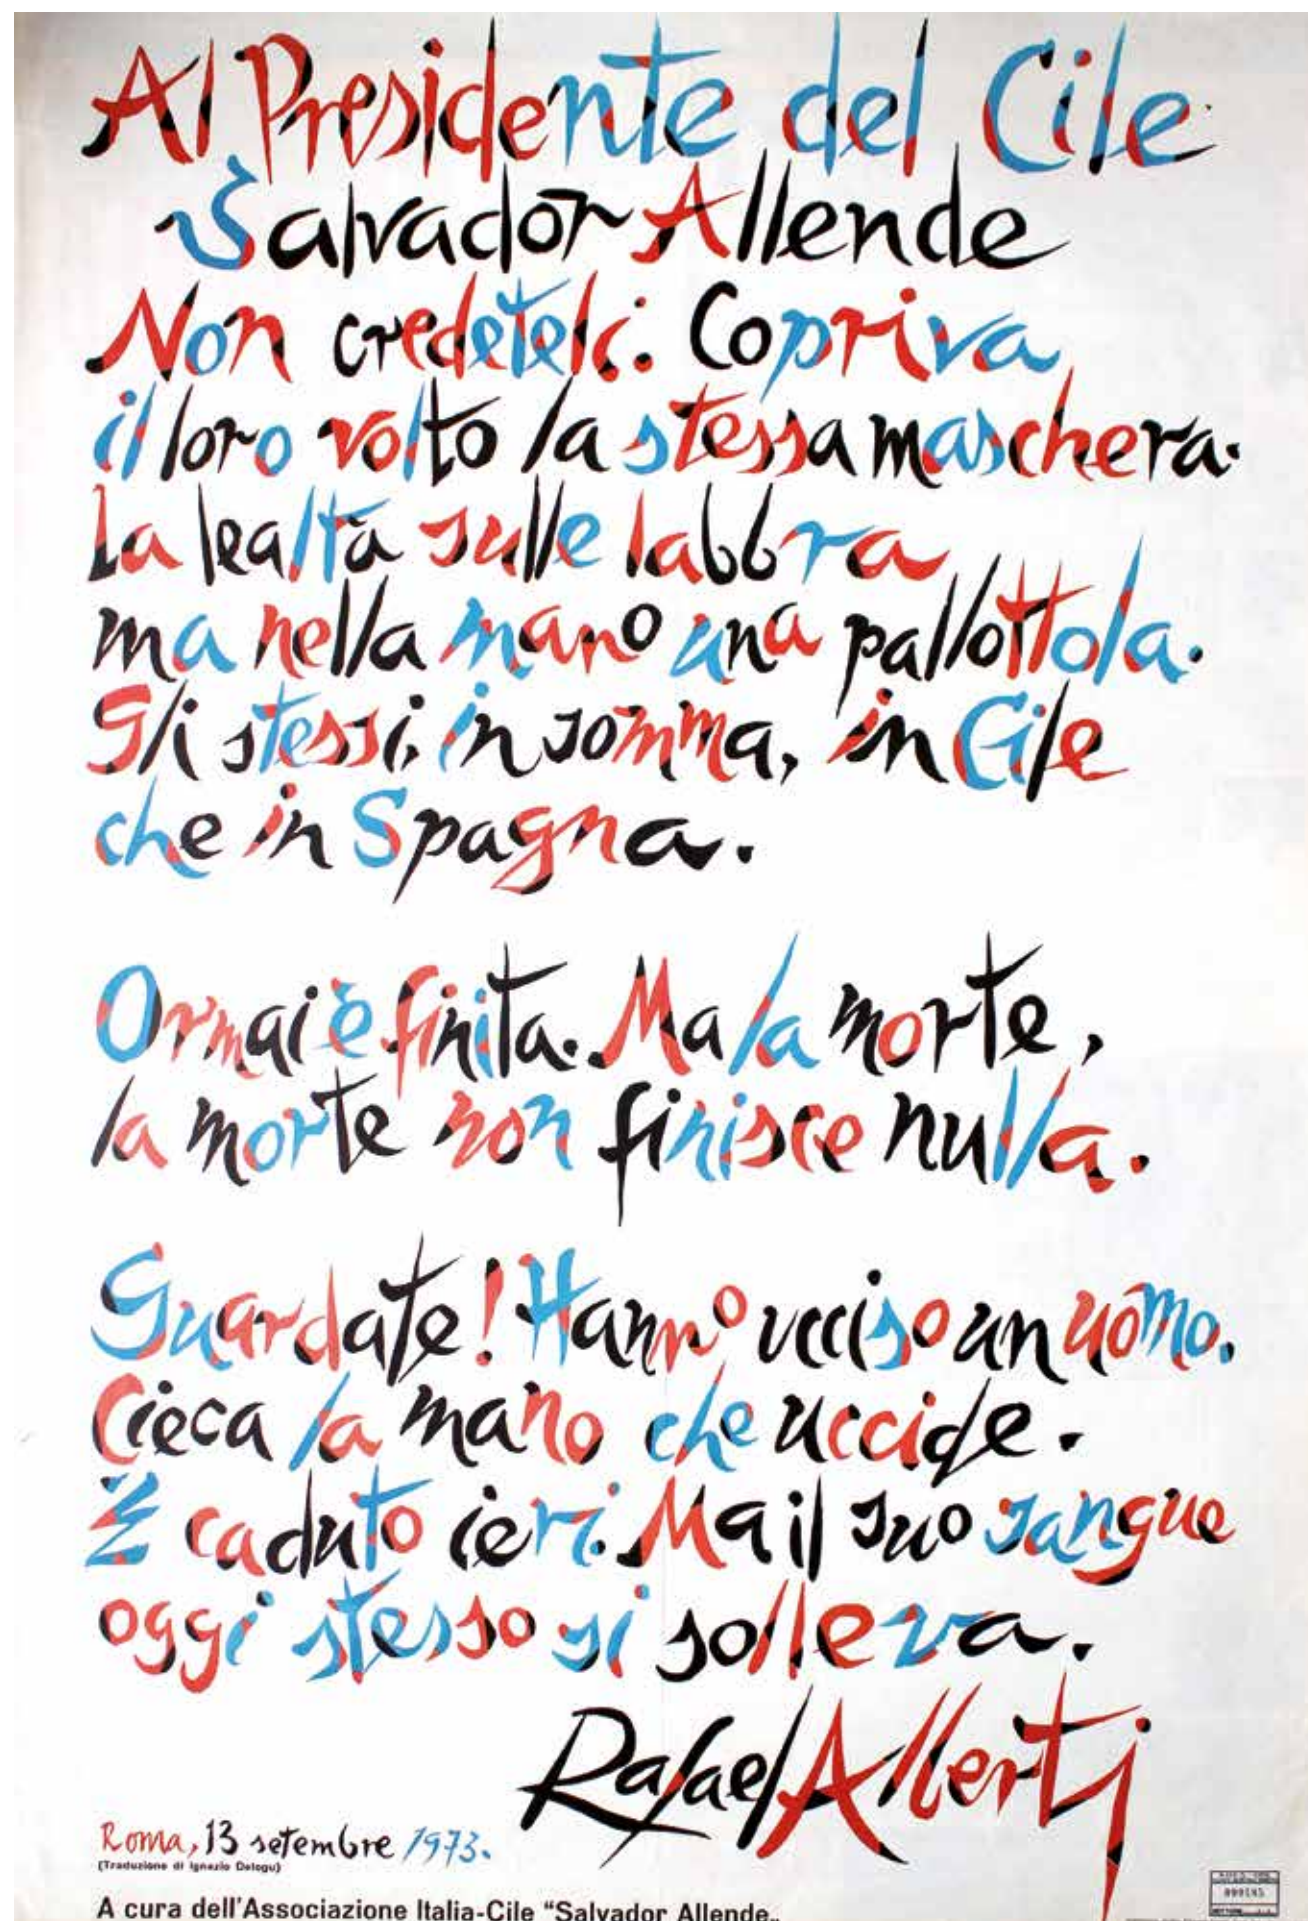 Al Presidente del Cile
Salvador Allende
Non credeteli. Copriva
il loro volto la stessa maschera.
La lealtà sulle labbra
ma nella mano una pallottola.
Gli stessi, in somma, in Cile
che in Spagna.
Ormai è finita. Ma la morte,
la morte non finisce nulla.
Guardate! Hanno ucciso un uomo.
Cieca la mano che uccide.
È caduto ieri. Ma il suo sangue
oggi stesso si solleva.
Rafael Alberti
Roma, 13 setembre 1973.
(Traduzione di Ignazio Delogu)
A cura dell'Associazione Italia-Cile "Salvador Allende„